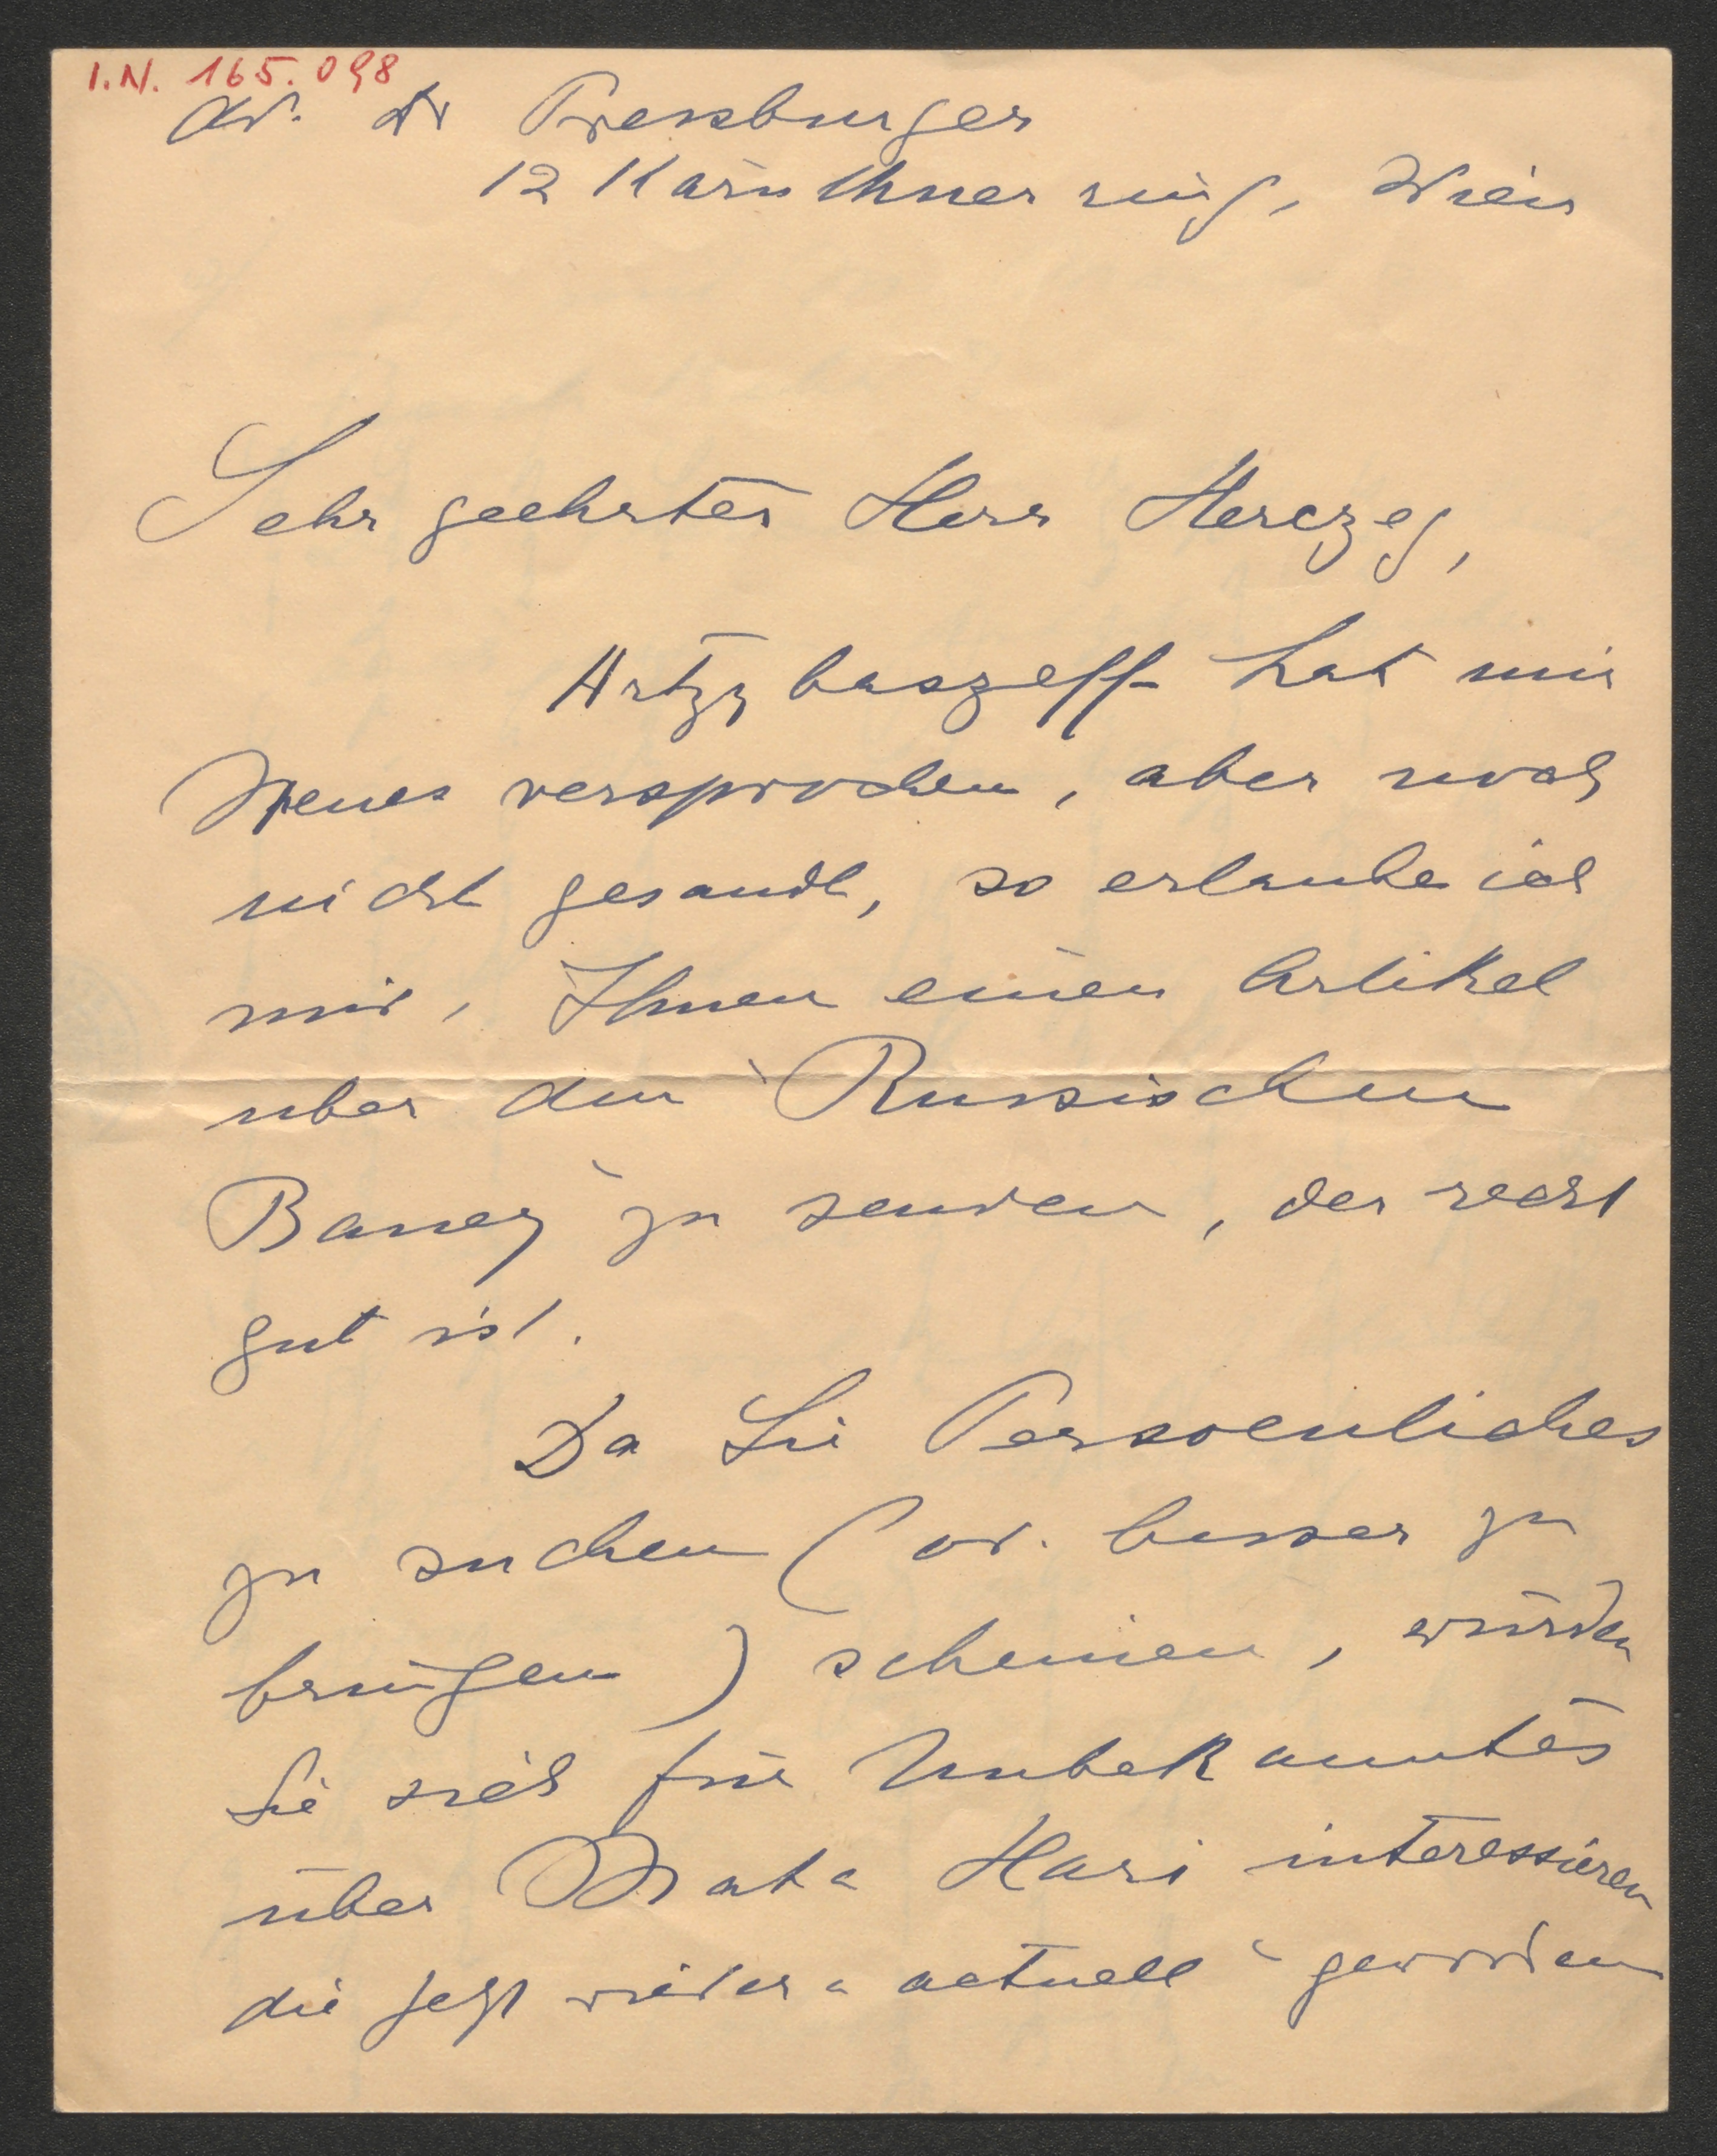 I.N. 165.098
Ad. Dr Pressburger
12 Kärnthnerring, Wien
Sehr geehrter Herr Herczeg,
Artzybaszeff hat mir
Neues versprochen, aber noch
nicht gesandt, so erlaube ich
mir, Ihnen einen Artikel
über den "Russischen
Barney" zu senden, der recht
gut ist.
Da Sie Persoenliches
zu suchen (od. besser zu
bringen) scheinen, würden
Sie sich für Unbekanntes
über Mata Hari interessieren
die jetzt wieder "actuell" geworden